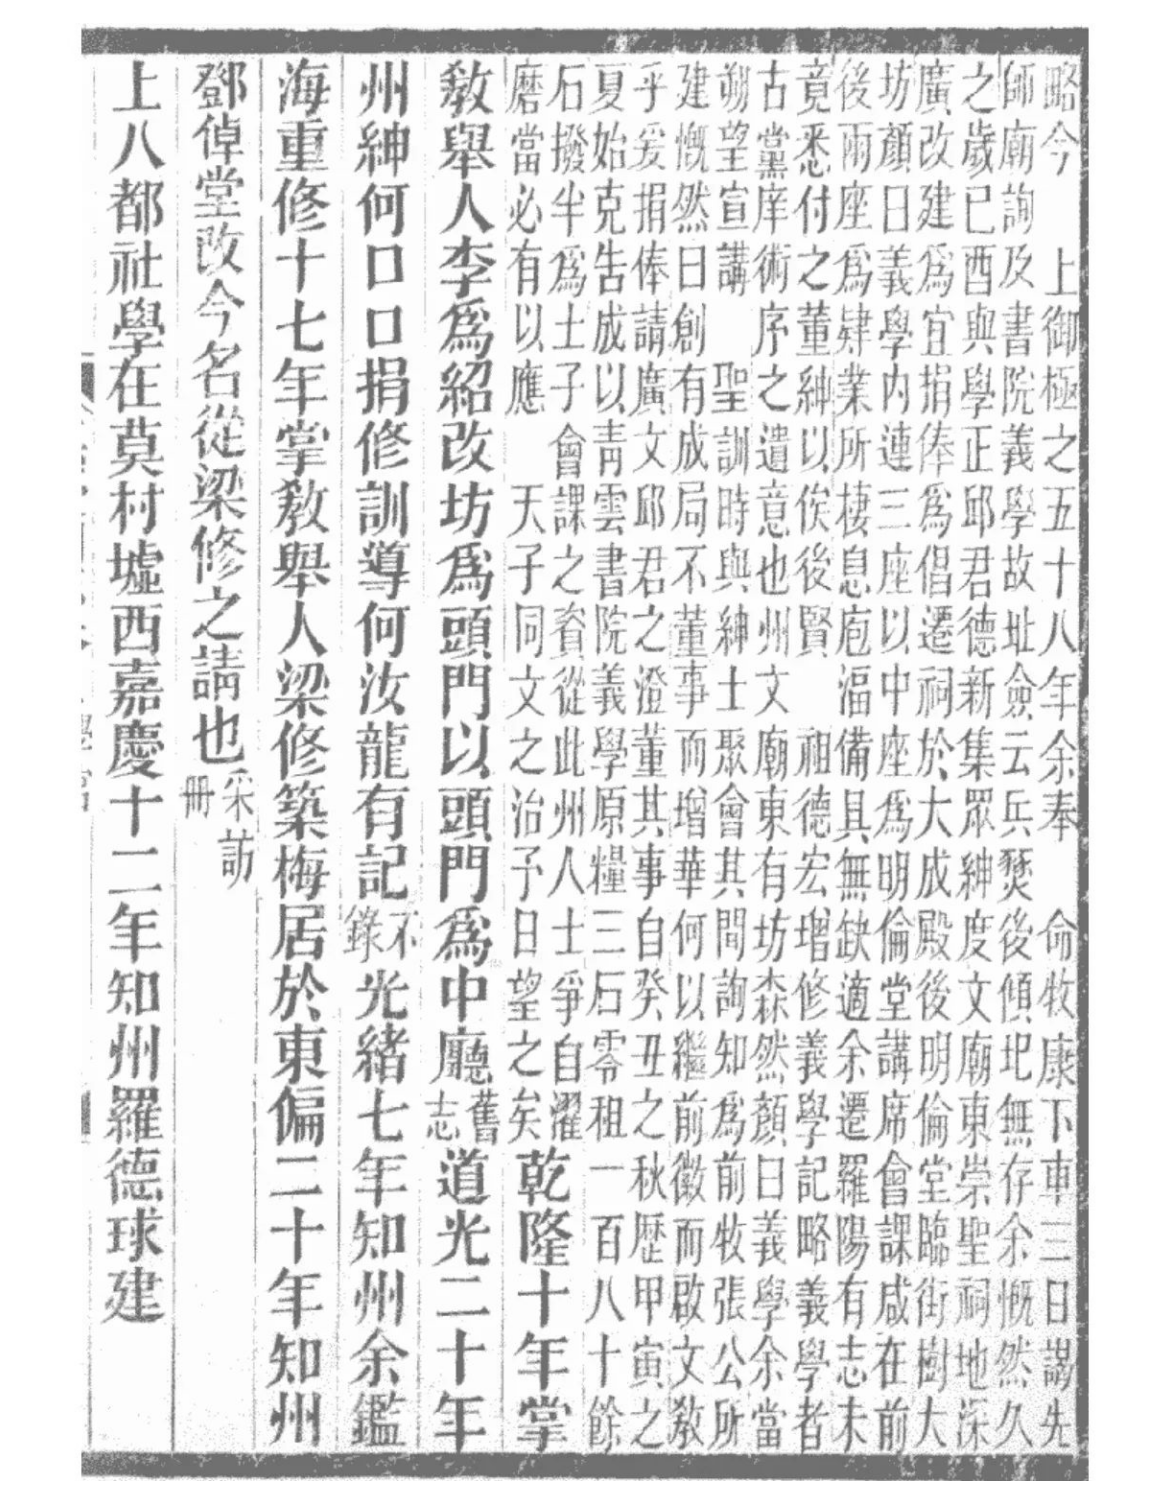 略今　上御極之五十八年余奉　命牧康下車三日謁先
師廟詢及書院義學故址僉云兵燹後傾圯無存余慨然久
之歲已酉與學正邱君德新集眾紳度文廟東崇聖祠地深
廣改建爲宜捐俸爲倡遷祠於大成殿後明倫堂臨街樹大
坊顏曰義學內連三座以中座爲明倫堂講席會課咸在前
後兩座爲肄業所棲息庖湢備具無缺適余遷羅陽有志未
竟悉付之董紳以俟後賢　祖德宏增修義學記略義學者
古黨庠術序之遺意也州文廟東有坊森然顏曰義學余當
朔望宣講　聖訓時與紳士聚會其間詢知爲前牧張公所
建慨然曰創有成局不董事而增華何以繼前徽而啟文教
乎爰捐俸請廣文邱君之澄董其事自癸丑之秋歷甲寅之
夏始克告成以靑雲書院義學原糧三石零租一百八十餘
石撥半爲士子會課之資從此州人士爭自濯
磨當必有以應　天子同文之治予日望之矣
乾隆十年掌
敎舉人李爲紹改坊爲頭門以頭門爲中廳舊志道光二十年
州紳何口口捐修訓導何汝龍有記不錄光緒七年知州余鑑
海重修十七年掌敎舉人梁修築梅居於東偏二十年知州
鄧倬堂改今名從梁修之請也采訪冊
上八都社學在莫村墟西嘉慶十二年知州羅德球建